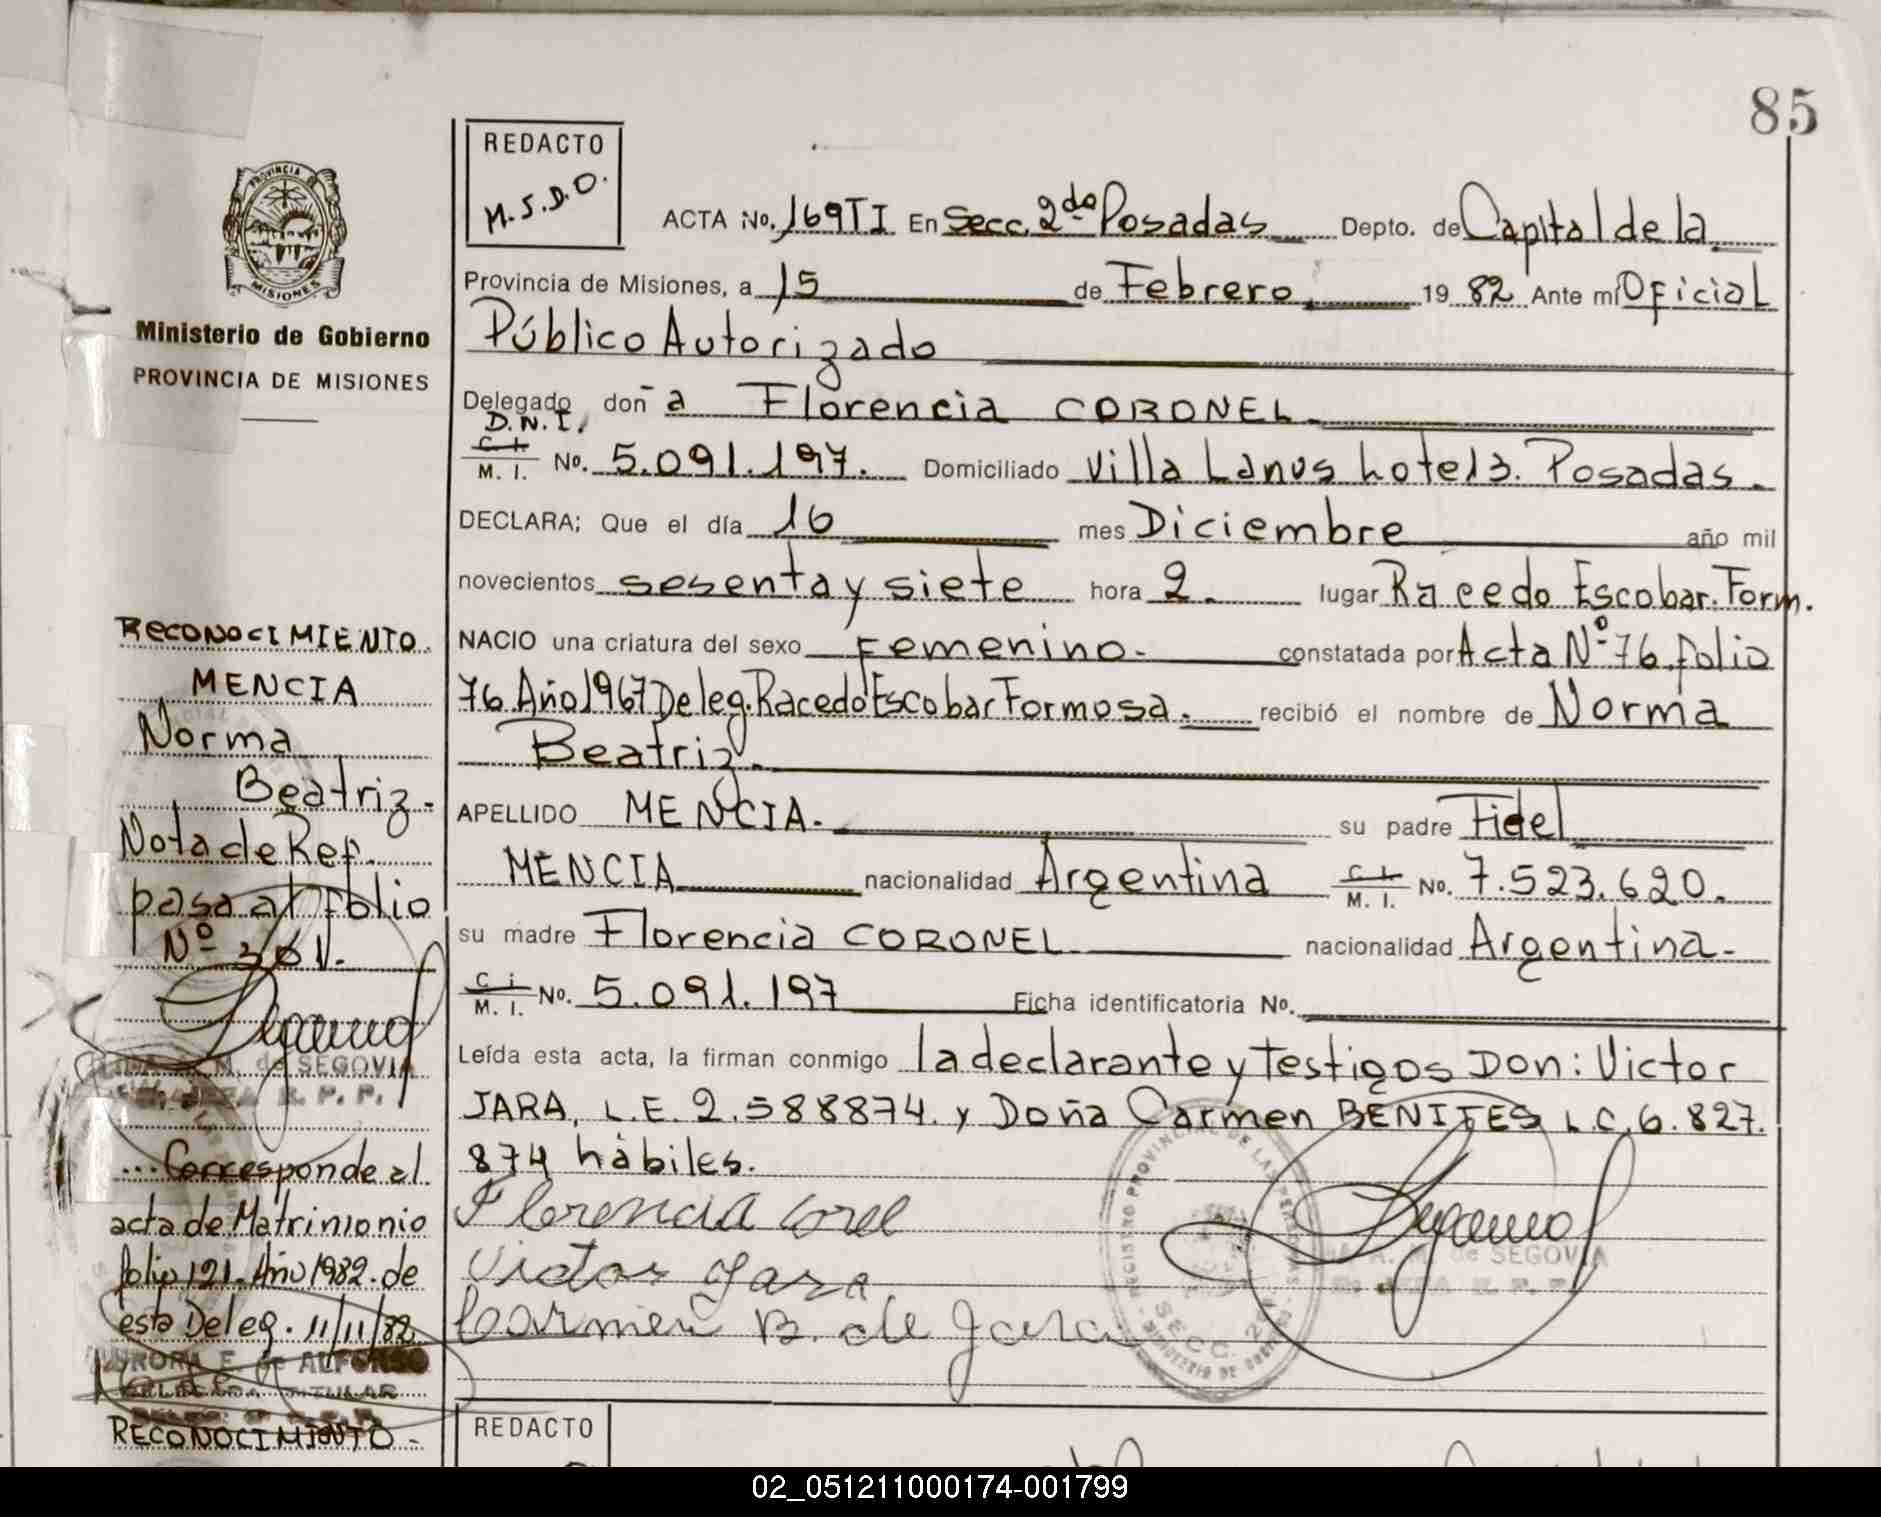 85
REDACTO
M.S.D.O.
PROVINCIA DE
MISIONES
Ministerio de Gobierno
PROVINCIA DE MISIONES
ACTA No. 169TI En Secc. 2da Posadas Depto. de Capital de la
Provincia de Misiones, a 15 de Febrero 19 82 Ante mí Oficial
Público Autorizado
Delegado doña Florencia CORONEL
D.N.I.
C. I.
M. I. No. 5.091.197. Domiciliado Villa Lanus Lote 13. Posadas.
DECLARA; Que el día 16 mes Diciembre año mil
novecientos sesenta y siete hora 2. lugar Racedo Escobar. Form.
NACIO una criatura del sexo Femenino. constatada por Acta Nº 76 folio
76 Año 1967 Deleg. Racedo Escobar Formosa. recibió el nombre de Norma
Beatriz.
APELLIDO MENCIA. su padre Fidel
MENCIA nacionalidad Argentina C. I. M. I. No. 7.523.620.
su madre Florencia CORONEL nacionalidad Argentina.
C. I. M. I. No. 5.091.197 Ficha identificatoria No.
Leída esta acta, la firman conmigo la declarante y Testigos Don: Victor
JARA, L.E. 2.588874. y Doña Carmen BENITES L.C. 6.827.
874 hábiles.
Florencia Corel
Victor Jara
Carmen B. de Jara
REGISTRO PROVINCIAL DE LAS PERSONAS
SECC. 2da
A. M. de SEGOVIA
RECONOCIMIENTO.
MENCIA
Norma
Beatriz.
Nota de Ref.
pasa al folio
Nº 301.
A. M. de SEGOVIA
R. P. P.
... Corresponde al
acta de Matrimonio
folio 121. Año 1982. de
esta Deleg. 11/11/82
AURORA E. de ALFONSO
DELEGADA TITULAR
RECONOCIMIENTO.
REDACTO
02_051211000174-001799